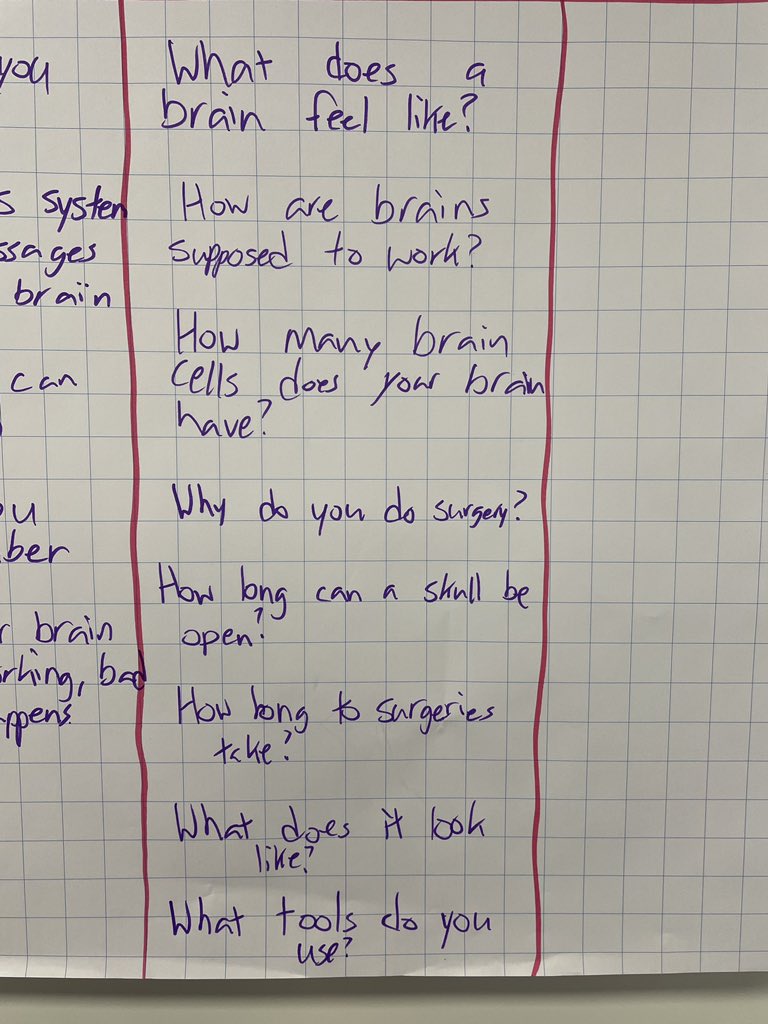 you
s system
ssages
brain
can
ber
brain
rking, bad
ppens
What does a
brain feel like?
How are brains
supposed to work?
How many brain
cells does your brain
have?
Why do you do surgery?
How long can a skull be
open?
How long to surgeries
take?
What does it look
like?
What tools do you
use?